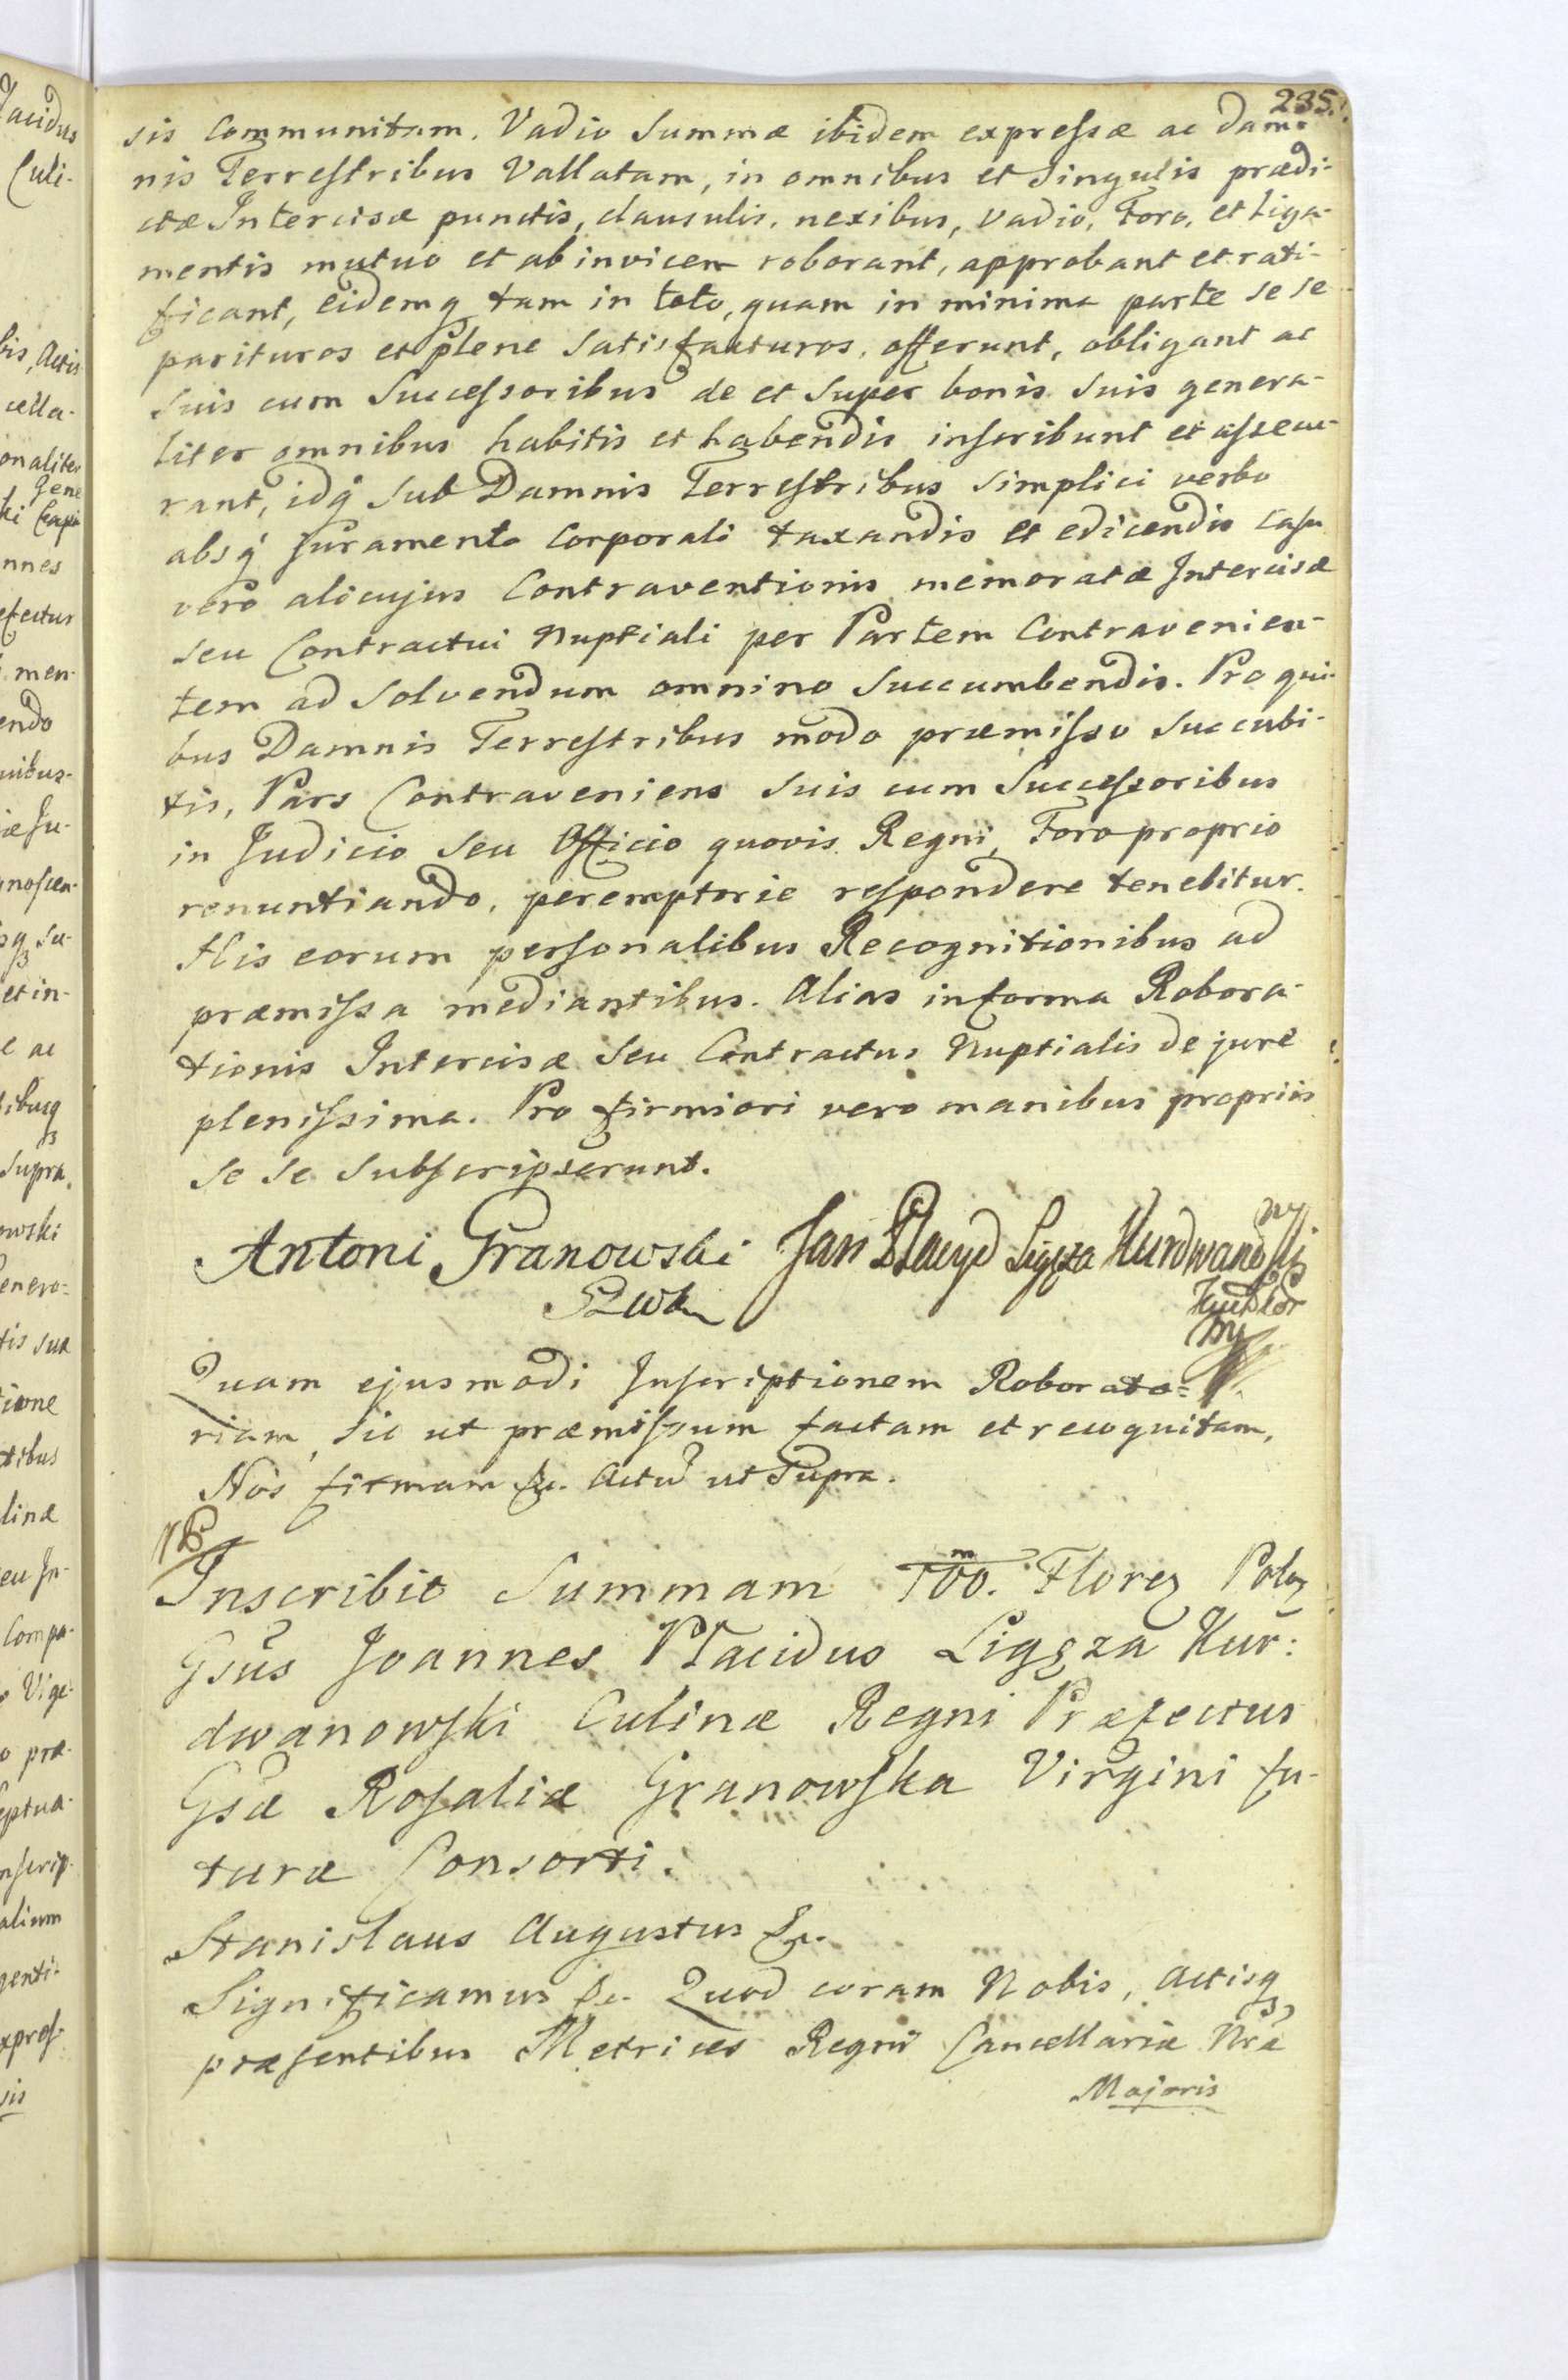 235.
sis Communitam. Vadio Summæ ibidem expressæ ac dam-
nis Terrestribus Vallatam, in omnibus et Singulis prædi-
ctæ Intercisæ punctis, clausulis, nexibus, Vadio, Foro, et Liga-
mentis mutuo et ab invicem roborant, approbant et rati-
ficant, eidemq tam in toto, quam in minima parte se se
parituros et plene Satisfacturos, offerunt, obligant ac
Suis cum Successoribus de et Super bonis Suis genera-
liter omnibus habitis et habendis inscribunt et assecu-
rant, idq Sub Damnis Terrestribus Simplici verbo
absq Juramento Corporali taxandis et edicendis Casu
vero alicujus Contraventionis memoratæ Intercisæ
Seu Contractui Nuptiali per Partem Contravenien-
tem ad Solvendum omnino Succumbendis. Pro qui-
bus Damnis Terrestribus modo præmisso Succubi-
tis, Pars Contraveniens Suis cum Successoribus
in Judicio Seu Officio quovis Regni, Foro proprio
renuntiando, peremptorie respondere tenebitur.
His eorum personalibus Recognitionibus ad
præmissa mediantibus. Alias in forma Robora-
tionis Intercisæ Seu Contractus Nuptialis de jure
plenissima. Pro firmiori vero manibus propriis
Se Se Subscripserunt.
Antoni Granowski Jan Placyd Ligęza Kurdwanowski
Quam ejusmodi Inscriptionem Roborato=
riam, Sic ut præmissum factam et recognitam,
Nos firmam &c. Actũ ut Supra.
Inscribit Summam 100. Florez Poloz
Gsūs Joannes Placidus Ligęza Kur:
dwanowski Culinæ Regni Præfectus
Gsæ Rosaliæ Granowska Virgini fu-
turæ Consorti.
Stanislaus Augustus &c.
Significamus &c. Quod coram Nobis, Actisq
præsentibus Metrices Regni Cancellariæ Nrã
Majoris